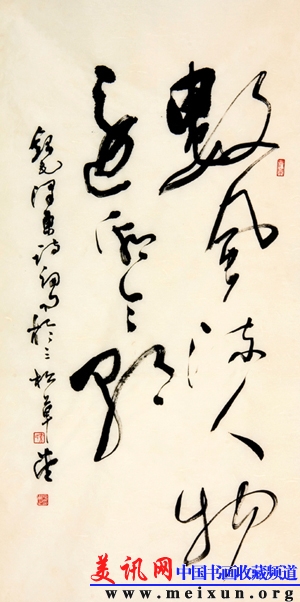 數風流人物
還看今朝
毛澤東詩詞於三松草堂
美讯网 中国书画收藏频道
www.meixun.org